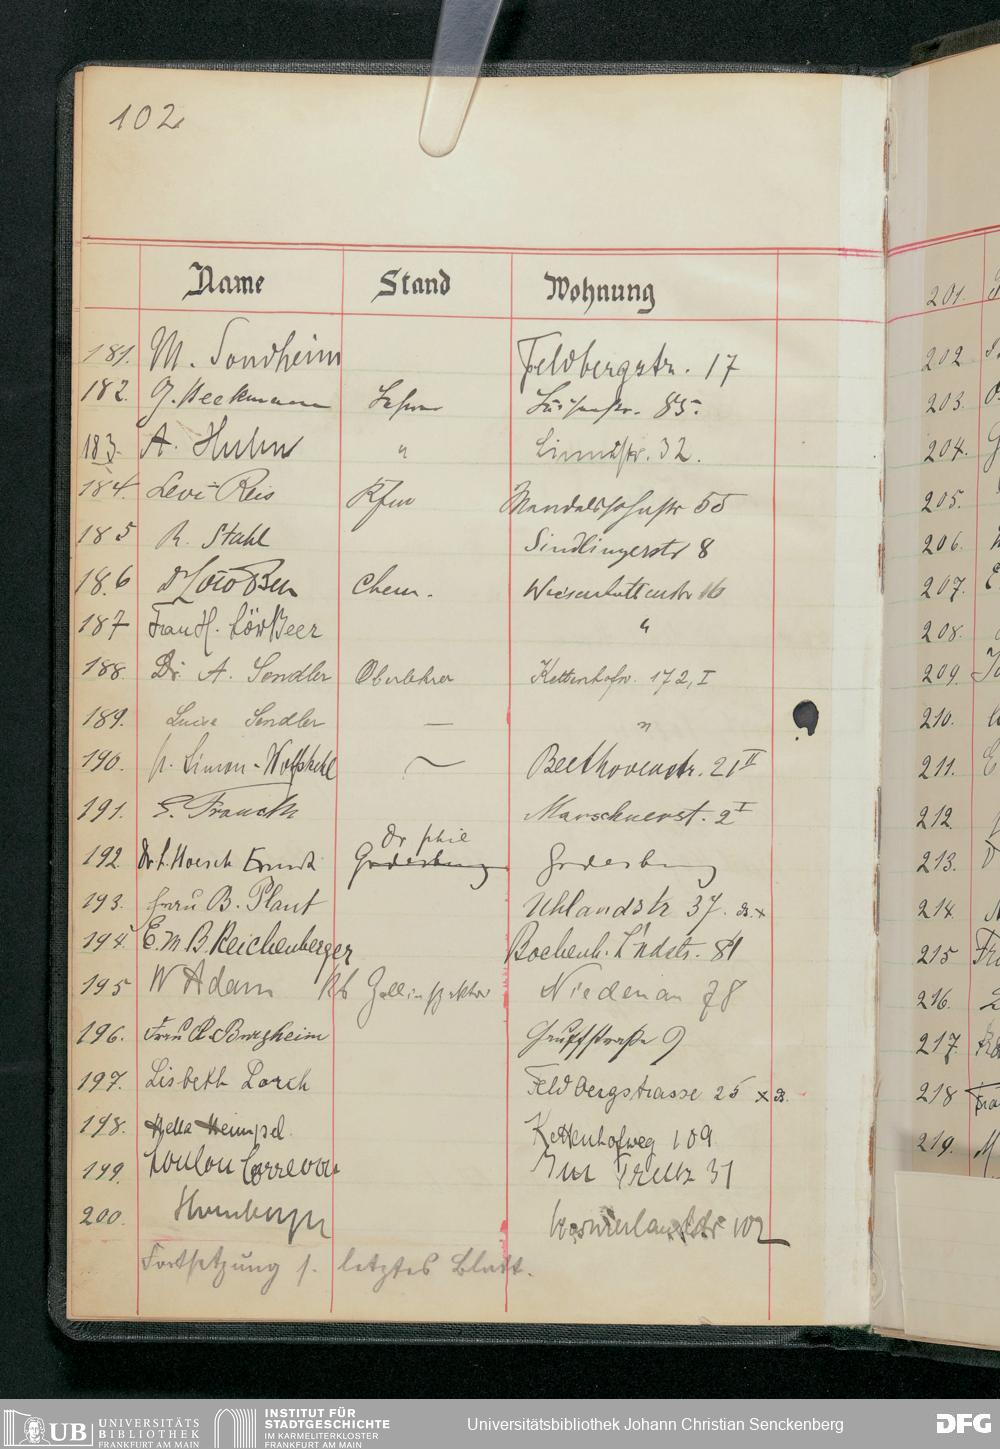 102
Name Stand Wohnung
181. M. Sondheim Feldbergstr. 17
182. G. Heckmann Lehrer 85.
183. A. Huhn " 32.
184. Levi-Reis Kfm Mendelssohnstr 55
185 R. Stahl Sindlingerstr 8
186 Chem. Wiesenhüttenstr 16
187 Frau H. Löw Beer "
188. Dr. A. Sendler Oberlehrer Kettenhofw. 172, I
189. Luise Sendler — "
190. Simon-Wolfskehl Beethovenstr. 21 II
191. E. Franck Marschnerst. 2 I
192. Hoesch Ernst Dr phil Godesberg Godesberg
193. Frau B. Plaut Uhlandstr 37.
194. E. M. B. Reichenberger Bockenh. Lndstr. 81
195 W Adam Zollinspektor Niedenau 78
196. Frau Burgheim straße 9
197. Lisbeth Lorch Feldbergstrasse 25 x
198. Hella Heimpel Kettenhofweg 109
199. Loulou Correvon Im Trutz 31
200. Homberger 102
Fortsetzung s. letztes Blatt.
201.
202
203.
204.
205.
206.
207.
208.
209.
210.
211.
212.
213.
214.
215
216.
217.
218
219.
UB UNIVERSITÄTS BIBLIOTHEK FRANKFURT AM MAIN
INSTITUT FÜR STADTGESCHICHTE IM KARMELITERKLOSTER FRANKFURT AM MAIN
Universitätsbibliothek Johann Christian Senckenberg
DFG